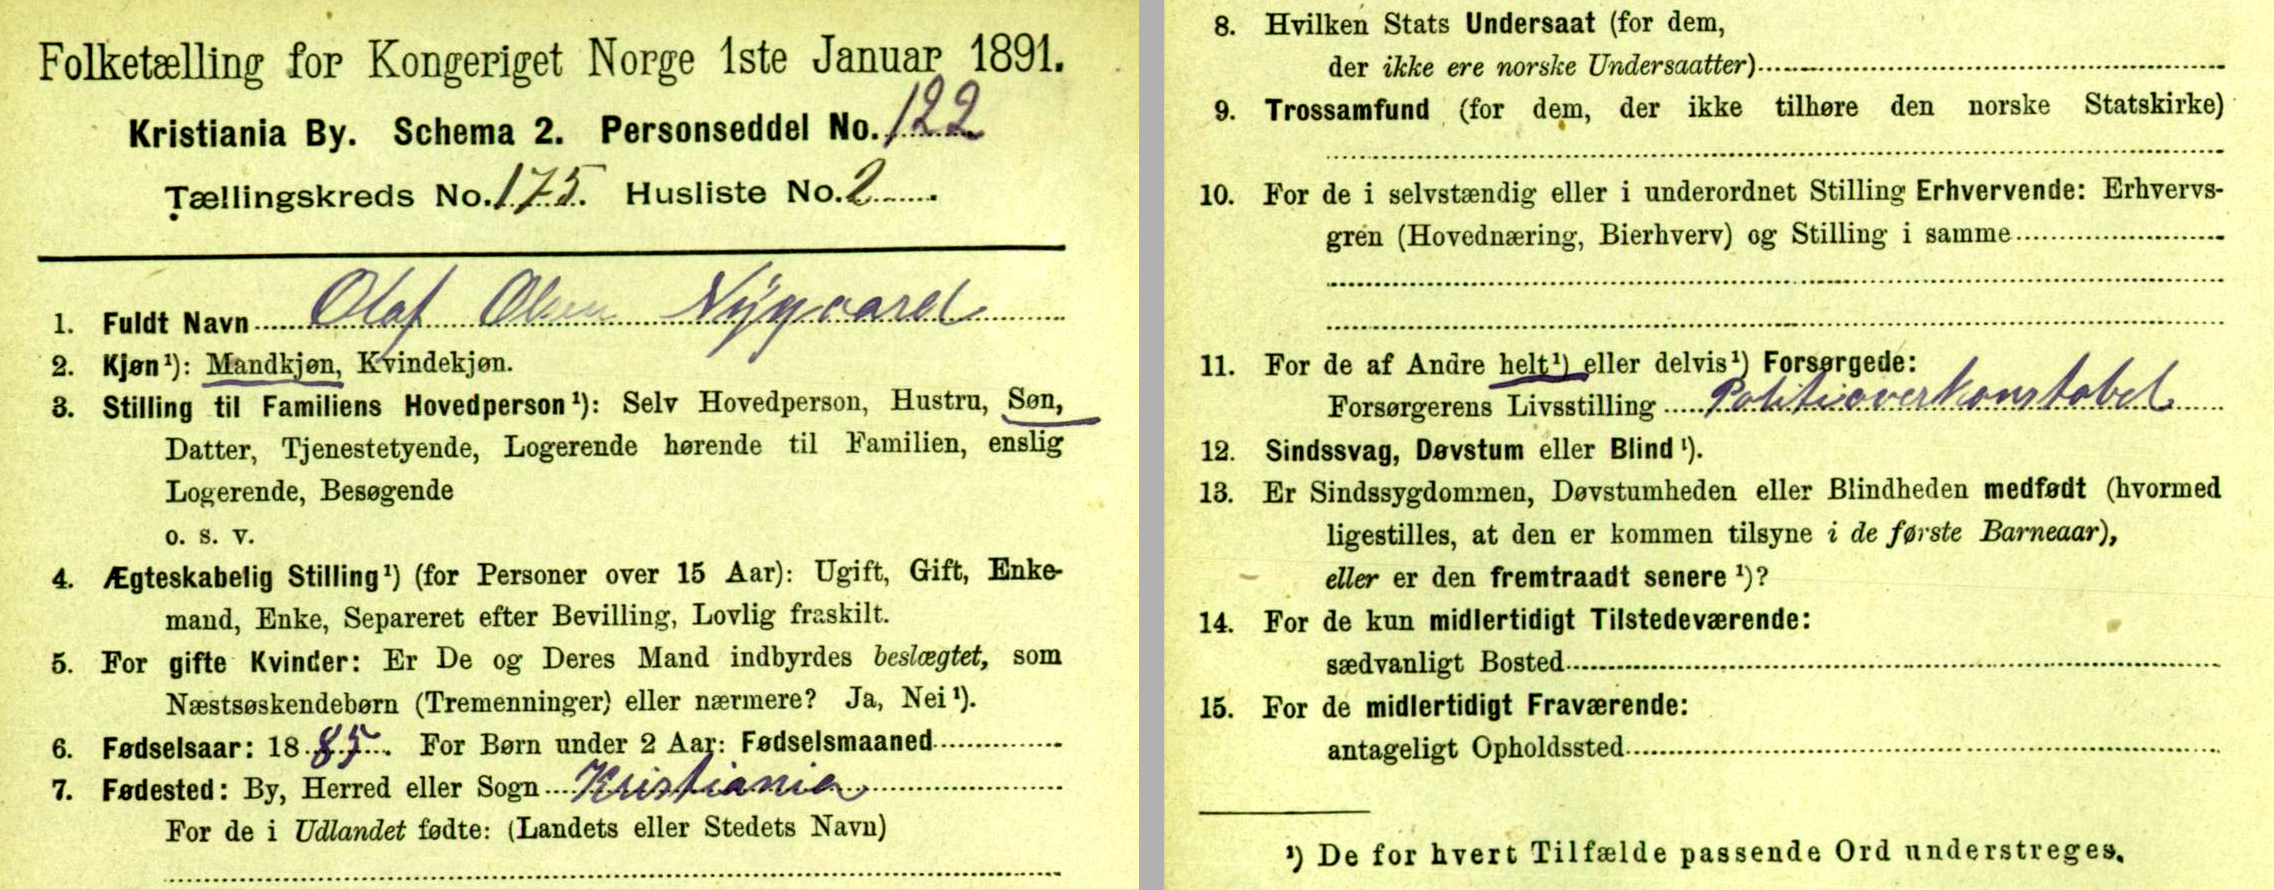 Folketælling for Kongeriget Norge 1ste Januar 1891.
Kristiania By. Schema 2. Personseddel No. 122
Tællingskreds No. 175. Husliste No. 2.
1. Fuldt Navn Olaf Olsen Nÿgaard
2. Kjøn¹): Mandkjøn, Kvindekjøn.
3. Stilling til Familiens Hovedperson¹): Selv Hovedperson, Hustru, Søn,
Datter, Tjenestetyende, Logerende hørende til Familien, enslig
Logerende, Besøgende
o. s. v.
4. Ægteskabelig Stilling¹) (for Personer over 15 Aar): Ugift, Gift, Enke-
mand, Enke, Separeret efter Bevilling, Lovlig fraskilt.
5. For gifte Kvinder: Er De og Deres Mand indbyrdes beslægtet, som
Næstsøskendebørn (Tremenninger) eller nærmere? Ja, Nei¹).
6. Fødselsaar: 1885. For Børn under 2 Aar: Fødselsmaaned
7. Fødested: By, Herred eller Sogn Kristiania
For de i Udlandet fødte: (Landets eller Stedets Navn)
8. Hvilken Stats Undersaat (for dem,
der ikke ere norske Undersaatter)
9. Trossamfund (for dem, der ikke tilhøre den norske Statskirke)
10. For de i selvstændig eller i underordnet Stilling Erhvervende: Erhvervs-
gren (Hovednæring, Bierhverv) og Stilling i samme
11. For de af Andre helt¹) eller delvis¹) Forsørgede:
Forsørgerens Livsstilling Politioverkonstabel
12. Sindssvag, Døvstum eller Blind¹).
13. Er Sindssygdommen, Døvstumheden eller Blindheden medfødt (hvormed
ligestilles, at den er kommen tilsyne i de første Barneaar),
eller er den fremtraadt senere¹)?
14. For de kun midlertidigt Tilstedeværende:
sædvanligt Bosted
15. For de midlertidigt Fraværende:
antageligt Opholdssted
¹) De for hvert Tilfælde passende Ord understreges.